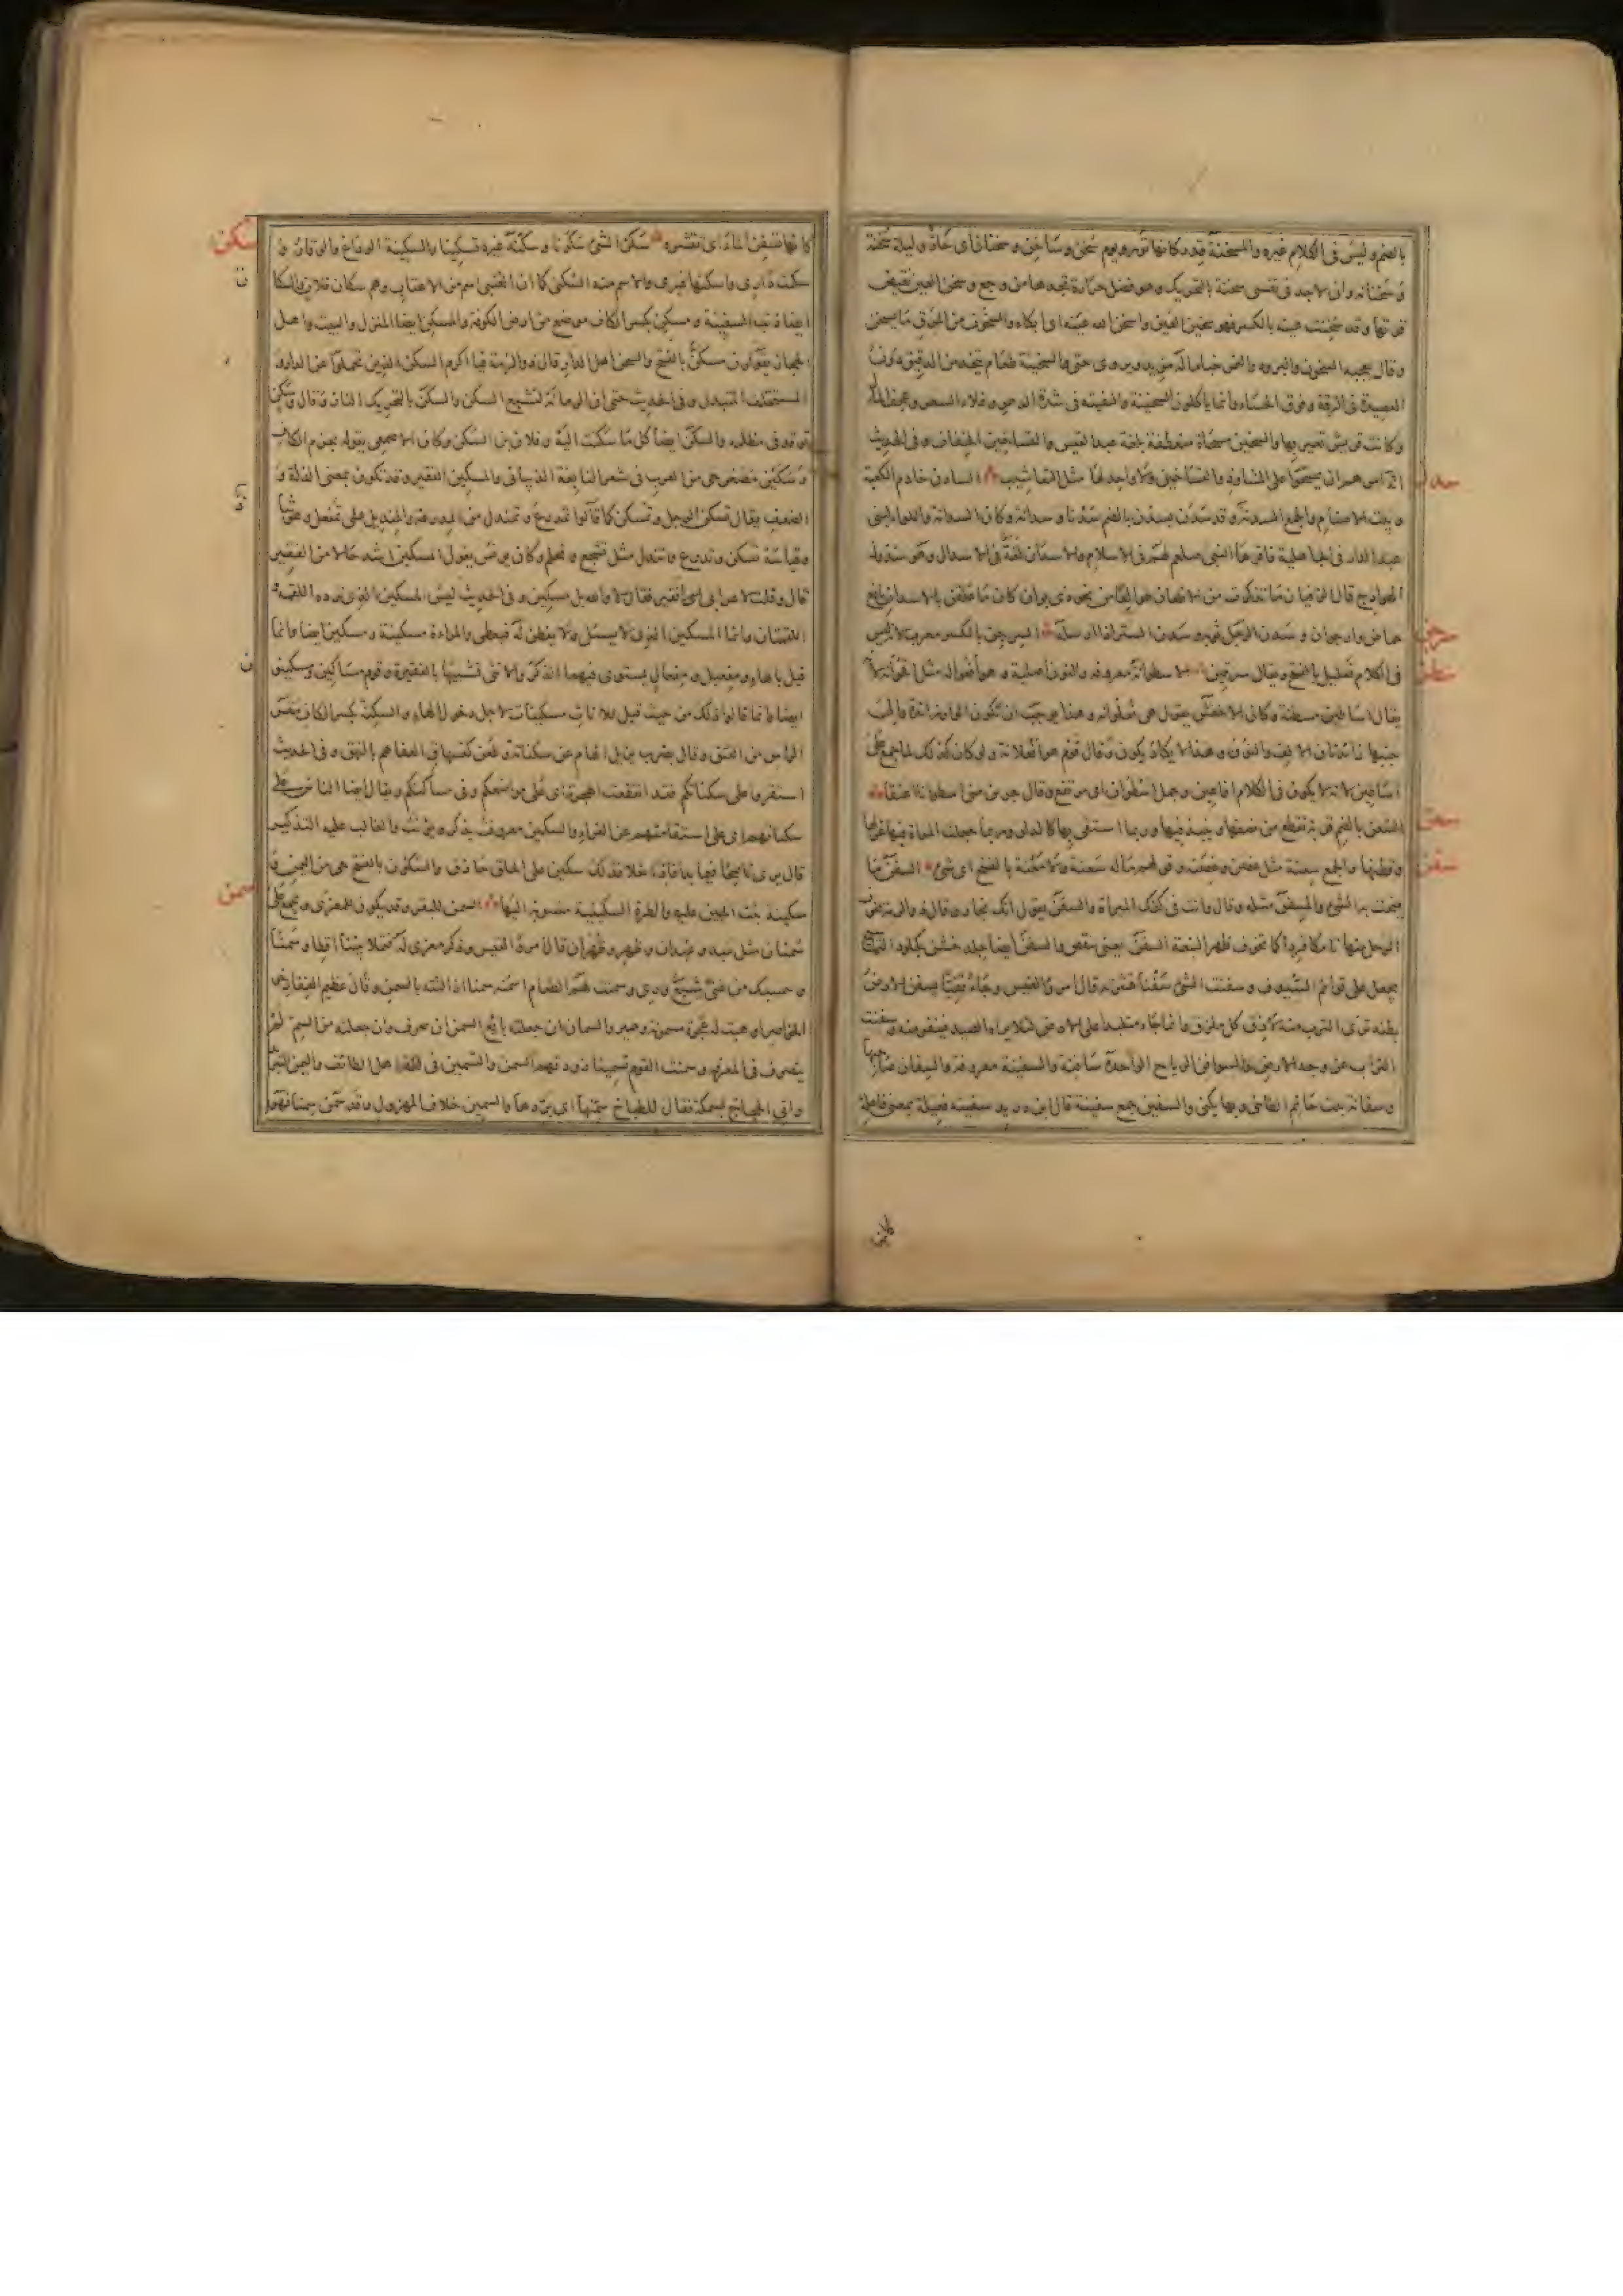 بالضم وليس في الكلام غيره والمسخنة قدر كانها تور ويوم سخن وساخن وسخنان اي حار وليلة سخنة
وسخنانة واني لاجد في نفسي سخنة بالتحريك وهو فضل حرارة تجدها من وجع وسخن العين نقيض
قرتها وقد سخنت عينه بالكسر فهو سخين العين واسخن الله عينه اي ابكاه والسخون من المرق ما يسخن
وقال يعجبه السخون والبرود والتمر حبا ما له مزيد ويروى حتى والسخينة طعام يتخذ من الدقيق دون
العصيدة في الرقة وفوق الحساء وانما ياكلون السخينة والنفيتة في شدة الدهر وغلاء السعر وعجف المال
وكانت قريش تعير بها والسخين مسحاة منعطفة بلغة عبد القيس والتساخين الخفاف وفي الحديث
امرهم ان يمسحوا على المشاوذ والتساخين ولا واحد لها مثل التعاشيب السادن خادم الكعبة
وبيت الاصنام والجمع السدنة وقد سدن يسدن بالضم سدنا وسدانة وكان السدانة واللواء لبني
عبد الدار في الجاهلية فاقرها النبي صلعم لهم في الاسلام والاسدان لغة في الاسدال وهو سدول
الهوادج قال الزفيان ماذا تذكرت من الاظعان طوالعا من نحو ذي بوان كان ما علقن بالاسدان يانع
حماض وارجوان وسدن الرجل ثوبه وسدن الستر اذا ارسله السرجين بالكسر معرب لانه ليس
في الكلام فعليل بالفتح ويقال سرقين الاسطوانة معروفة والنون اصلية وهو افعواله مثل اقحوانة لانه
يقال اساطين مسطنة وكان الاخفش يقول هي فعلوانة وهذا يوجب ان تكون الواو زائدة والى
جنبها زائدتان الالف والنون وهذا لا يكاد يكون وقال قوم هو افعلانة ولو كان كذلك لما جمع على
اساطين لانه لا يكون في الكلام افاعين وجمل اسطوان اي مرتفع وقال جربن مني اسطوانا اعنقا
السعن بالضم قربة تقطع من نصفها وينبذ فيها وربما استقى بها كالدلو وربما جعلت المراة فيها غزلها
وقطنها والجمع سعنة مثل غصن وغصنة وقولهم ماله سعنة ولا معنة بالفتح اي شيء السفن ما
ينحت به الشيء والمسفن مثله وقال وانت في كفك المبراة والسفن يقول انك نجار وقال ذو الرمة تخوف
الرحل منها تامكا قردا كما تخوف ظهر النبعة السفن يعني تنقص والسفن ايضا جلد خشن كجلود التماسيح
يجعل على قوائم السيوف وسفنت الشيء سفنا قشرته قال امرؤ القيس وجاء قفيا يسفن الارض
بطنه ترى الترب منه لازقا كل ملزق وانما جاء متلبدا على الارض لئلا يراه الصيد فينفر منه وسفنت
التراب عن وجه الارض والسوافن الرياح الواحدة سافنة والسفينة معروفة والسفان صاحبها
وسفانة بنت حاتم الطائي وبها يكنى والسفين جمع سفينة قال ابن دريد سفينة فعيلة بمعنى فاعلة
كانها تسفن الماء اي تقشره سكن الشيء سكونا وسكنه غيره تسكينا والسكينة الوداع والوقار و
سكنت داري واسكنتها غيري والاسم منه السكنى كما ان العتبى اسم من الاعتاب وهم سكان فلان والسكان
ايضا ذنب السفينة ومسكن بكسر الكاف موضع من ارض الكوفة والمسكن ايضا المنزل والبيت واهل
الحجاز يقولون مسكن بالفتح والسكن اهل الدار قال ذو الرمة فيا اكرم السكن الذين تحملوا عن الدار و
المستخلف المتبدل وفي الحديث حتى ان الرمانة لتشبع السكن والسكن بالتحريك النار وقال وسكن
توقد في مظله والسكن ايضا كل ما سكنت اليه وفلان بن السكن وكان الاصمعي يقوله بجزم الكاف
وسكين مصغر حي من العرب في شعر النابغة الذبياني والمسكين الفقير وقد تكون بمعنى الذلة و
الضعف يقال تسكن الرجل وتمسكن كما قالوا تمدرع وتمندل من المدرعة والمنديل على تمفعل وهو شاذ
وقياسه تسكن وتدرع وتندل مثل تشجع وتحلم وكان يونس يقول المسكين اشد حالا من الفقير
قال وقلت لاعرابي افقير فقال لا والله بل مسكين وفي الحديث ليس المسكين الذي ترده اللقمة
اللقمتان وانما المسكين الذي لا يسئل ولا يفطن له فيعطى والمراءة مسكينة ومسكين ايضا وانما
قيل بالهاء ومفعيل ومفعال يستوي فيهما الذكر والانثى تشبيها بالفقيرة وقوم مساكين ومسكينون
ايضا وانما قالوا ذلك من حيث قيل للاناث مسكينات لاجل دخول الهاء والسكنة بكسر الكاف مقر
الراس من العنق وقال بضرب يزيل الهام عن سكناته وطعن كتشهاق العفا هم بالنهق وفي الحديث
استقروا على سكناتكم فقد انقطعت الهجرة اي على مواضعكم وفي مساكنكم ويقال ايضا الناس على
سكناتهم اي على استقامتهم عن الفراء والسكين معروف يذكر ويؤنث والغالب عليه التذكير
قال يرى ناصحا فيما بدا فاذا خلا فذلك سكين على الحلق حاذق والسكون بالفتح حي من اليمن و
سكينة بنت الحسين عليه والطرة السكينية منسوبة اليها السمن للبقر وقد يكون للمعزى ويجمع على
سمنان مثل عبد وعبدان وظهر وظهران قال امرؤ القيس وذكر معزى له فتملا بيتنا اقطا وسمنا
وحسبك من غنى شبع وري وسمنت لهم الطعام اسمنه سمنا اذا لتته بالسمن وقال عظيم القفا رخو
الخواصر اوهبت له عجوة مسمونة وخمير والسمان ان جعلته بائع السمن انصرف وان جعلته من السم لم
ينصرف في المعرفة وسمنت القوم تسمينا زودتهم السمن والتسمين في لغة اهل الطائف واليمن التبريد
واتي الحجاج بسمكة فقال للطباخ سمنها اي بردها والسمين خلاف المهزول وقد سمن سمنا فهو
سدن
سرجن
سطن
سعن
سفن
سكن
سمن
كانها